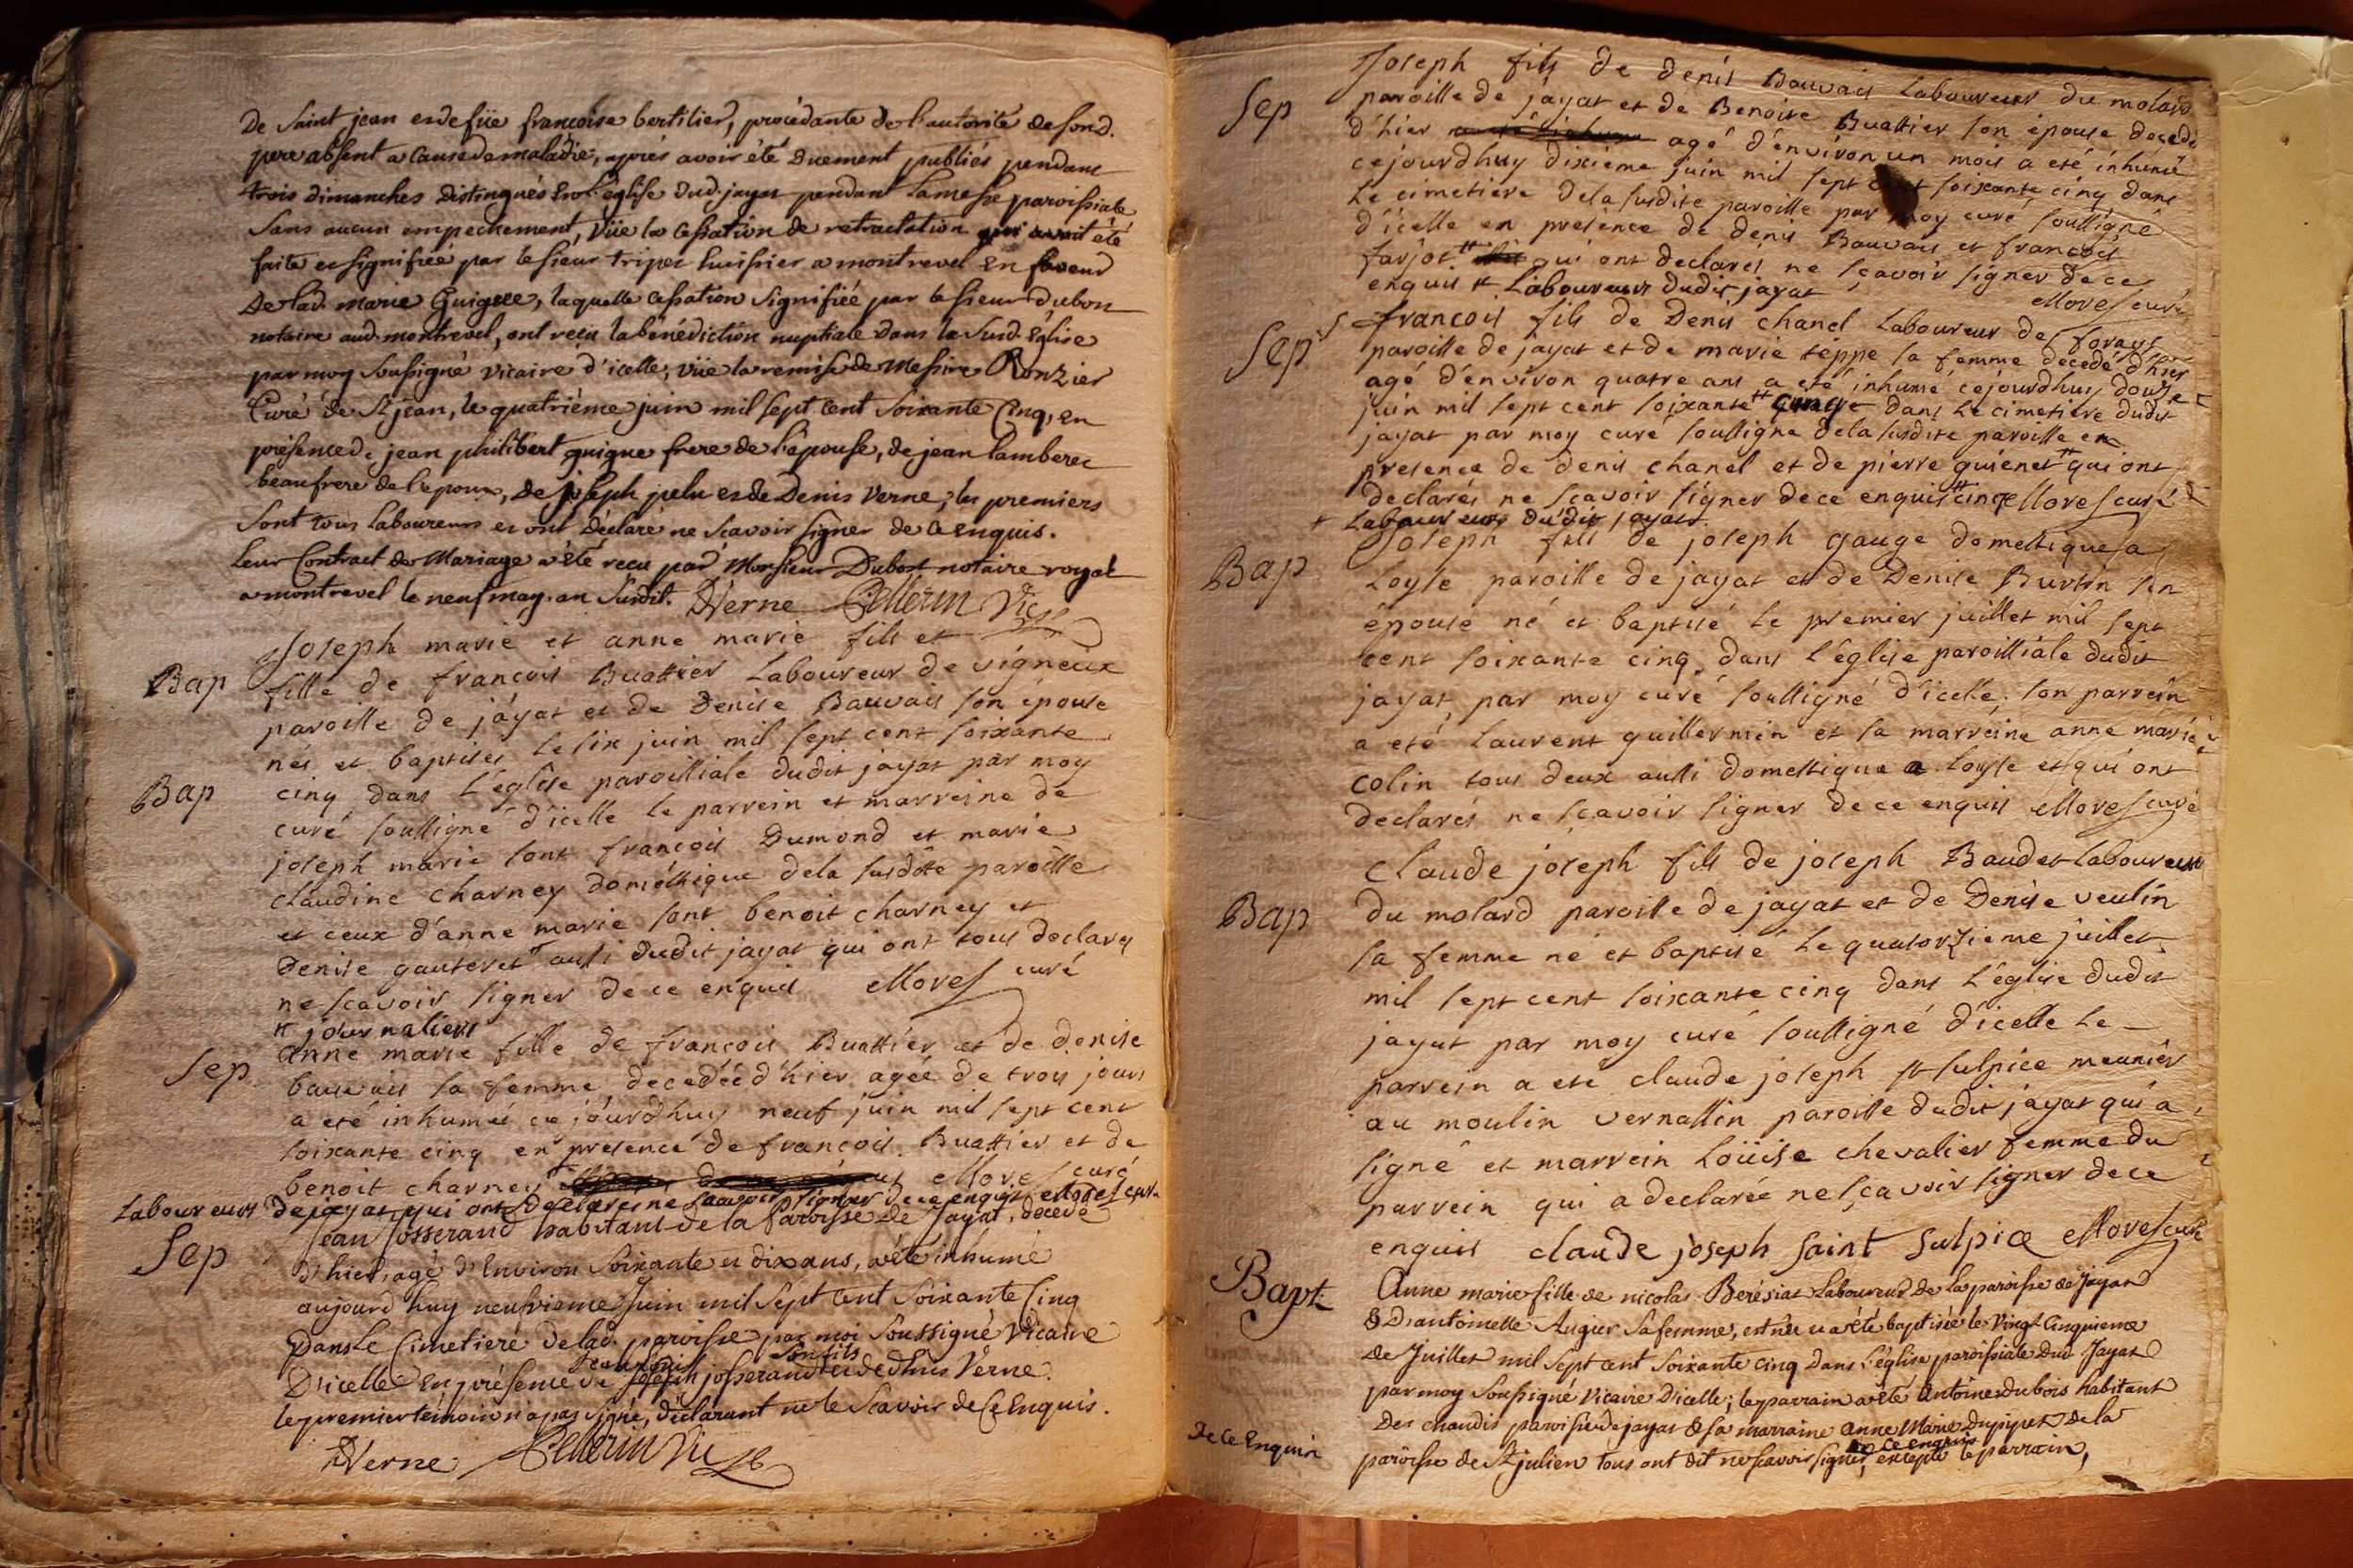 De Saint jean et de füe francoise bertilier, procedante de l'autorité de son d.
pere absent a Cause de maladie, aprés avoir été Duement publiés pendant
trois dimanches distingués en l'église dud. jayat pendant la messe paroissiale
Sans aucun empechement, vüe la Cessation de retractation qui avoit été
faite et signifiée par le sieur tripet huissier a montrevel en faveur
De lad. marie Guigue, laquelle Cessation Signifiée par le sieur dubon
notaire aud. montrevel, ont reçu la bénédiction nuptiale dans la Susd. église
par moy Soussigné vicaire d'icelle, vüe la remise de Messire Ronzier
Curé de St jean, le quatriéme juin mil sept cent Soixante Cinq, en
présence de jean philibert guigue frere de l'épouse, de jean Lamberet
beaufrere de l'epoux, de joseph pelu et de Denis Verne; les premiers
Sont tous laboureurs et ont Déclaré ne Scavoir signer de Ce enquis.
Leur Contract de Mariage a été recu par Monsieur Dubost notaire royal
a montrevel le neuf may. an Susdit. DVerne Pellerin Vic
Joseph marie et anne marie fils et
Bap fille de francois Buattier Laboureur de vigneux
paroisse de jayat et de Denise Bauvais son épouse
nés et baptises le six juin mil sept cent soixante
Bap cinq dans l'église paroissiale dudit jayat par moy
curé soussigné d'icelle le parrein et marreine de
joseph marie sont francois Dumond et marie
claudine charney doméstique dela susdite paroisse
et ceux d'anne marie sont benoit charney et
Denise gauteret # aussi dudit jayat qui ont tous declarés
ne scavoir signer de ce enquis Mores curé
# journaliers
Sep anne marie fille de francois Buattier et de denise
bauvais sa femme decedée d'hier agée de trois jours
a eté inhumée ce jourdhuy neuf juin mil sept cent
soixante cinq en presence de francois Buattier et de
benoit charney Mores curé
Laboureurs de jayat qui ont declarés ne scavoir signer de ce enquis Mores curé
Sep Jean Josserand habitant de la Paroisse de Jayat, decedé
D'hier, agé d'Environ Soixante et dix ans, a été inhumé
aujourd'huy neufvieme Juin mil Sept Cent Soixante Cinq
Dans le Cimetiere de lad. paroisse par moi Soussigné Vicaire
D'icelle En présence de Jean Louis josserand son fils et de denis Verne.
le premier témoin n'a pas signé, déclarant ne le Scavoir de Ce Enquis.
DVerne Pellerin Vic
Joseph fils de denis Bauvais Laboureur du molard
Sep paroisse de jayat et de Benoite Buattier son épouse decedé
d'hier agé d'environ un mois a eté inhumé
cejourdhuy dixieme juin mil sept cent soixante cinq dans
Le cimetiere dela susdite paroisse par moy curé soussigné
d'icelle en presence de denis Bauvais et francois
farjot # qui ont declarés ne scavoir signer de ce
enquis # Laboureurs dudit jayat Mores curé
Sep francois fils de Denis chanel Laboureur des forays
paroisse de jayat et de marie téppe sa femme decedé d'hier
agé d'environ quatre ans a eté inhumé cejourdhuy douze
juin mil sept cent soixante # cinq dans Le cimetiere dudit
jayat par moy curé soussigné dela susdite paroisse en
presence de denis chanel et de pierre guienet # qui ont
declarés ne scavoir signer de ce enquis # cinq Mores curé
+ Laboureurs dudit jayat
Joseph fils de joseph gauge domestique a
Bap Loyse paroisse de jayat et de Denise Burtin son
épouse né et baptisé Le premier juillet mil sept
cent soixante cinq dans L'église paroissiale dudit
jayat par moy curé soussigné d'icelle. son parrein
a eté Laurent guillermin et sa marreine anne marie
colin tous deux aussi domestique a Loyse et qui ont
declarés ne scavoir signer de ce enquis Mores curé
Claude joseph fils de joseph Baudet Laboureur
Bap du molard paroisse de jayat et de Denise veulin
sa femme né et baptisé Le quatorzieme juillet
mil sept cent soixante cinq dans L'église dudit
jayat par moy curé soussigné d'icelle Le
parrein a eté claude joseph st sulpice meunier
au moulin vernassin paroisse dudit jayat qui a
signé et marrein Loüise chevalier femme du
parrein qui a declarée ne scavoir signer de ce
enquis claude joseph saint sulpice Mores curé
Bapt. Anne marie fille de nicolas Berésiat Laboureur de la paroisse de Jayat
& D'antoinette Auguer Sa femme, est née et a été baptisée le Vingt Cinquieme
de Juillet mil Sept Cent Soixante Cinq dans l'église paroissiale Dud Jayat
par moy Soussigné Vicaire D'icelle; le parrain a été Antoine dubois habitant
Des chaudis paroisse de jayat & Sa marraine anne Marie dupupet De la
De Ce Enquis paroisse de St julien tous ont dit ne scavoir signer de ce enquis, excepté le parrain,